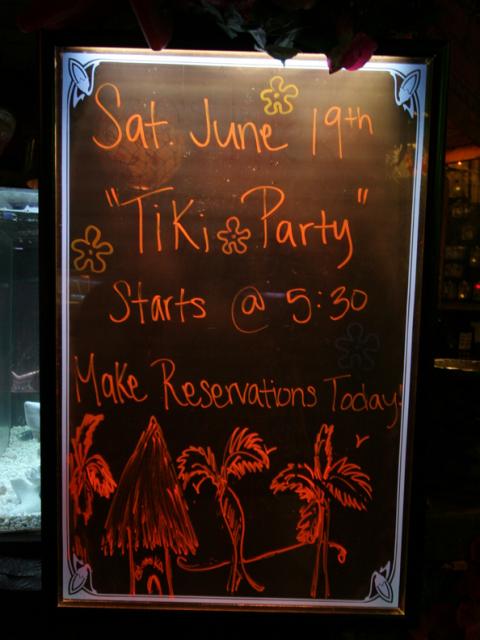 Sat. June 19th
"Tiki Party"
Starts @ 5:30
Make Reservations Today!